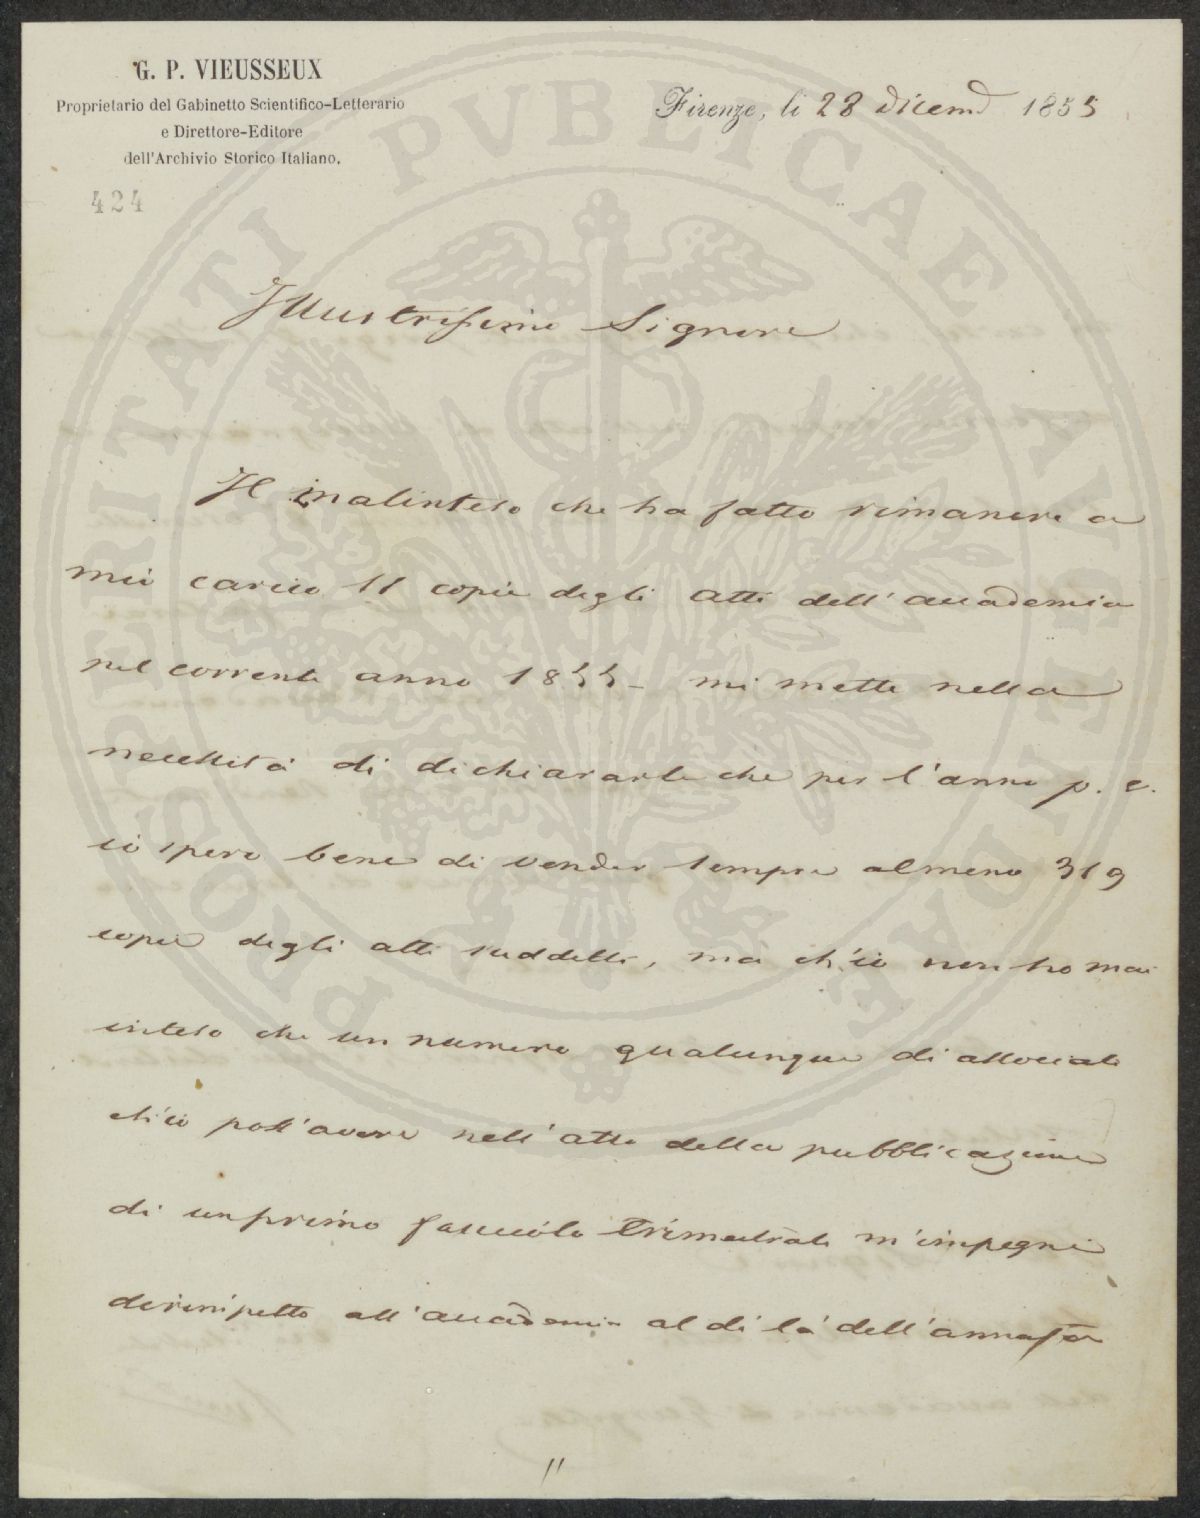 G. P. VIEUSSEUX
Proprietario del Gabinetto Scientifico-Letterario
e Direttore-Editore
dell'Archivio Storico Italiano.
Firenze, li 28 dicemb 1855
424
Illustrissimo Signore
Il malinteso che ha fatto rimanere a
mio carico 11 copie degli atti dell'accademia
nel corrente anno 1855 - mi mette nella
necessità di dichiararle che per l'anno p. v.
io spero bene di vender sempre almeno
copie degli atti suddetti, ma ch'io non ho mai
inteso che un numero qualunque di associati
ch'io poss'avere nell'atto della pubblicazione
di un primo fascicolo trimestrale m'impegni
dirimpetto all'accademia al di là dell'annata
11
PROSPERITATI PVBLICAE AVGENDAE